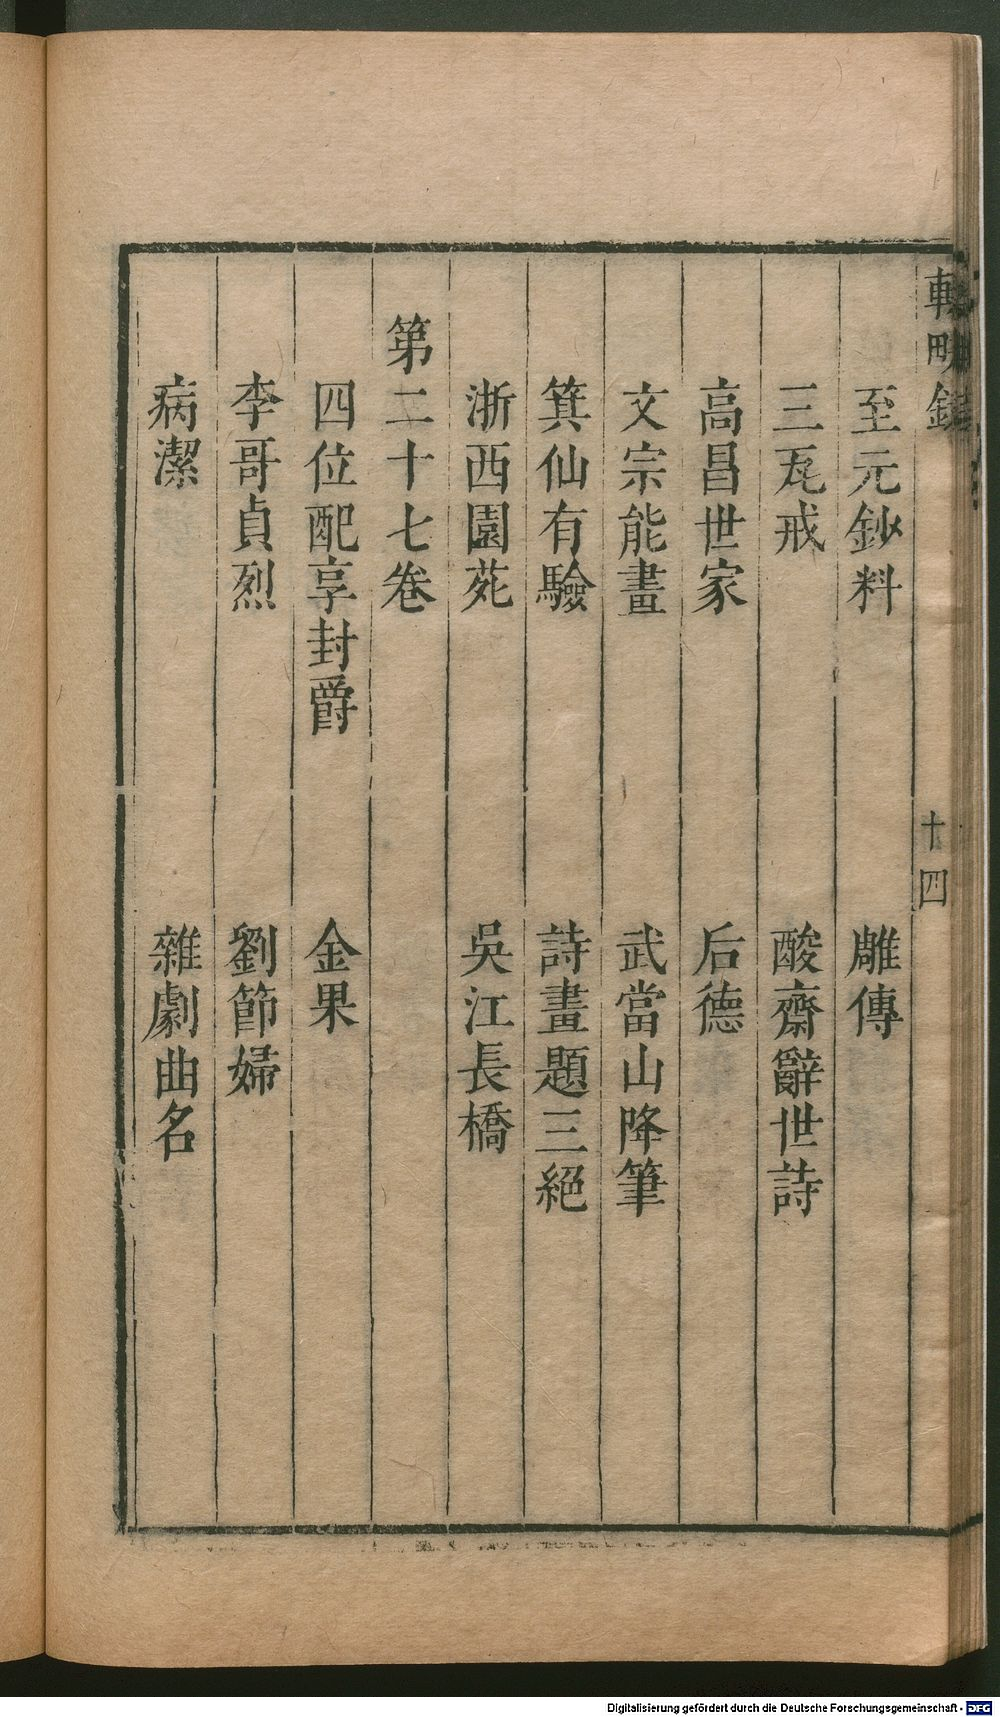 輟畊錄 十四
至元鈔料 雕傳
三瓦戒 酸齋辭世詩
高昌世家 后德
文宗能畫 武當山降筆
箕仙有驗 詩畫題三絕
浙西園苑 吳江長橋
第二十七卷
四位配享封爵 金果
李哥貞烈 劉節婦
病潔 雜劇曲名
Digitalisierung gefördert durch die Deutsche Forschungsgemeinschaft - DFG